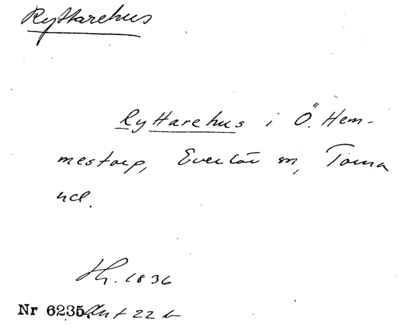 Ryttarehus
Ryttarehus i Ö. Hem-
mestorp, Everlöv sn, Torna
hd.
1836
Nr 6235, 22